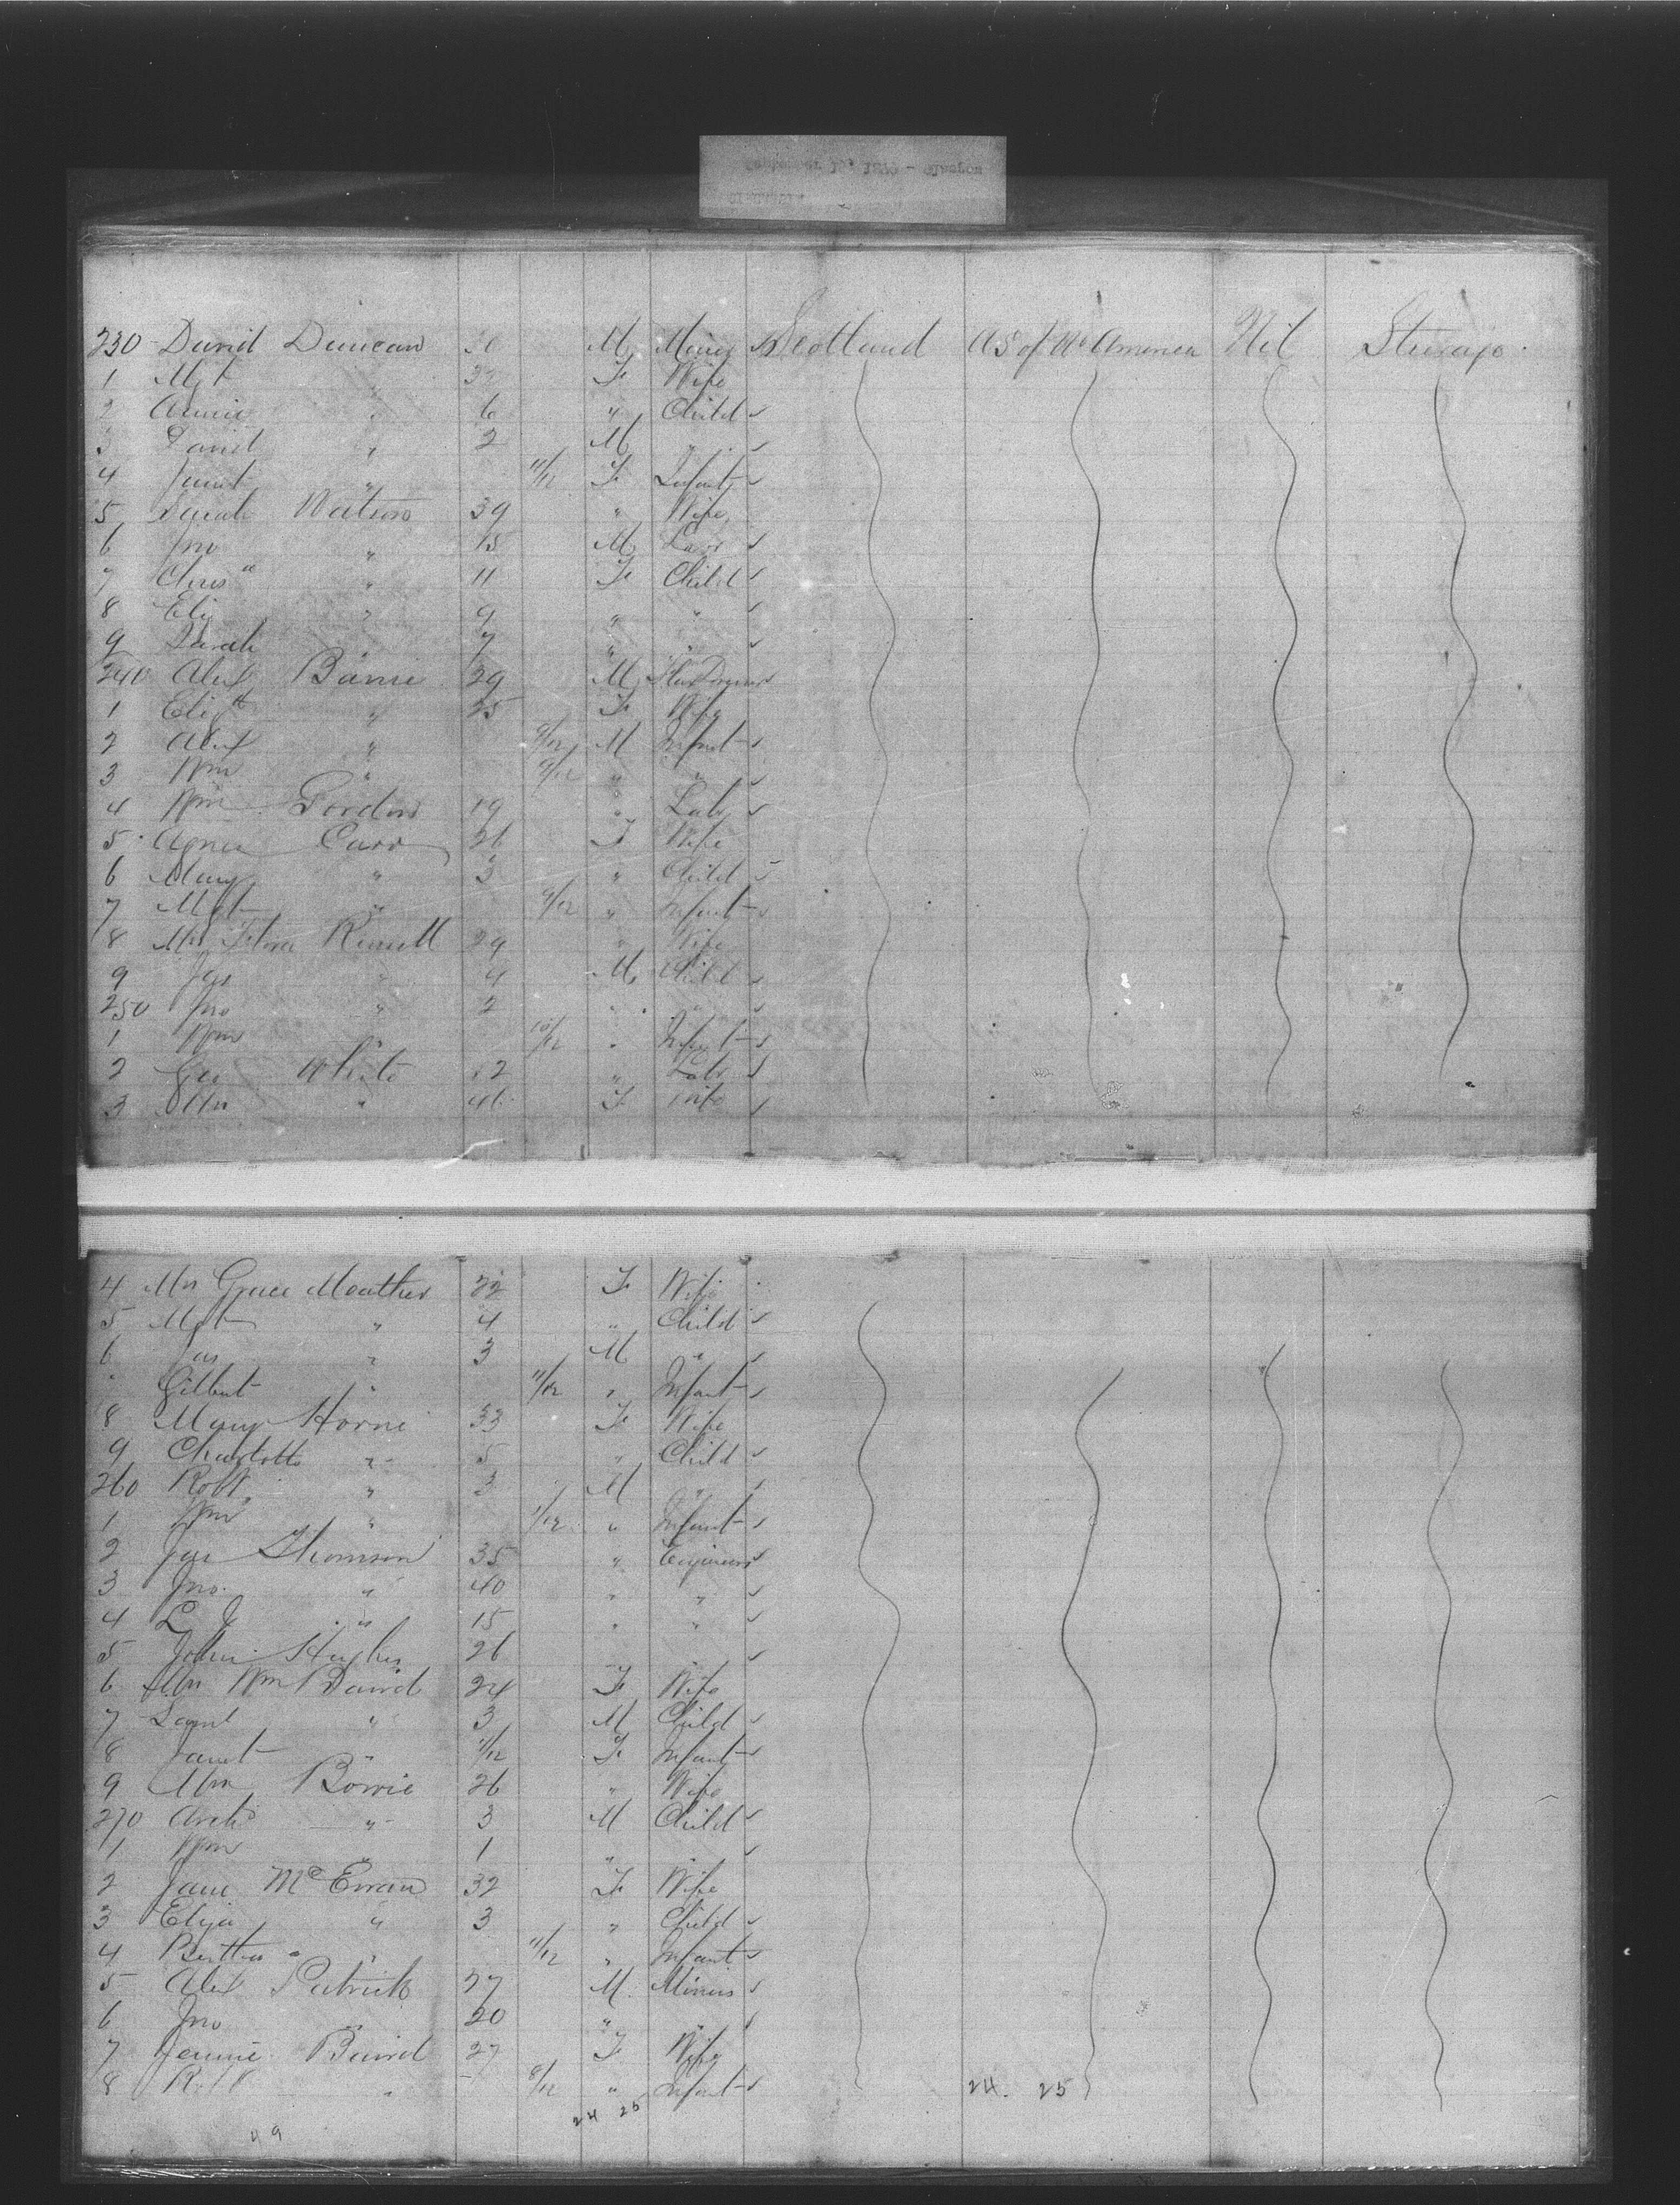 230 David Duncan M Miner Scotland U S of No America Nil Steerage
1 Mgt " 32 F Wife
2 Annie " 6 " Child
3 David " 2 M "
4 Janet " 11/12 F Infant
5 Sarah Watson 39 " Wife
6 Jno " 15 M Labr
7 Chris a " 11 F Child
8 Eliz " 9 " "
9 Sarah " 7 " "
240 Alex Barrie 29 M
1 Eliz th " 25 F Wife
2 Alex " 9/12 M Infant
3 Wm " 9/12 " "
4 Wm Gordon 19 " Labr
5 Agnes Carr 26 F Wife
6 Mary " 3 " Child
7 Mgt " 9/12 " Infant
8 Mrs Flora Russell 29 " Wife
9 Jas " 4 M Child
250 Jno " 2 " "
1 Wm " 10/12 " Infant
2 Geo White " Labr
3 Mrs " F Wife
4 Mrs Grace Mouther 22 F Wife
5 Mgt " 4 " Child
6 Jas " 3 M "
Gilbert " 11/12 " Infant
8 Mary Horne 33 F Wife
9 Charlotte " 5 " Child
260 Robt " 3 M "
1 Wm " 1/12 " Infant
2 Jas Thomson 35 " Engineer
3 Jno " 40 " "
4 L J " 15 " "
5 John Hughes 26 " "
6 Mrs Wm Baird 24 F Wife
7 Saml " 3 M Child
8 Janet " 11/12 F Infant
9 Mrs Bowie 26 " Wife
270 Archd " 3 M Child
1 Wm " 1 " "
2 Jane McEwan 32 F Wife
3 Eliza " 3 " Child
4 Bertha " " 11/12 " Infant
5 Alex Patrick 27 M Miners
6 Jno " 20 " "
7 Jennie Baird 27 F Wife
8 " 8/12 " Infant 24. 25
24 25
49